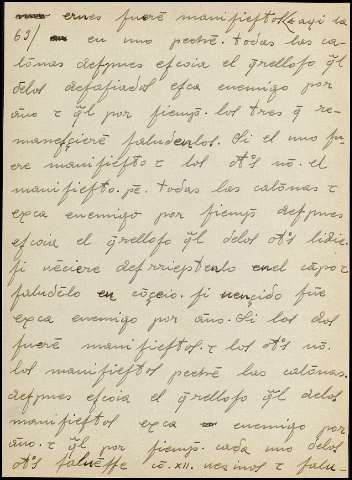 ernes fuerē manifiestos
63/ en uno pectrē. todas las ca-
lōnias despues escoia el q̄relloso q̄l
delos desafiados esca enemigo por
año ⁊ q̄l por siempꝰ. los tres q̄ re-
manesçierē saludenlos. Si el uno fu-
ere manifiesto ⁊ los otºs nō. el
manifiesto. pe. todas las calōnias ⁊
exca enemigo por siempꝰ despues
escoia el q̄relloso q̄l delos otºs lidie.
si uēciere desrrieptenlo enel cāpo ⁊
saludēlo en cōçeio. si uençido fue
exca enemigo por año. Si los dos
fuerē manifiestos. ⁊ los otºs nō.
los manifiestos pectrē las calōnias.
despues escoia el q̄relloso q̄l delos
manifiestos exca enemigo por
año. ⁊ q̄l por siempꝰ. cada uno delos
otºs saluesse cō. xii. uezinos ⁊ salu-